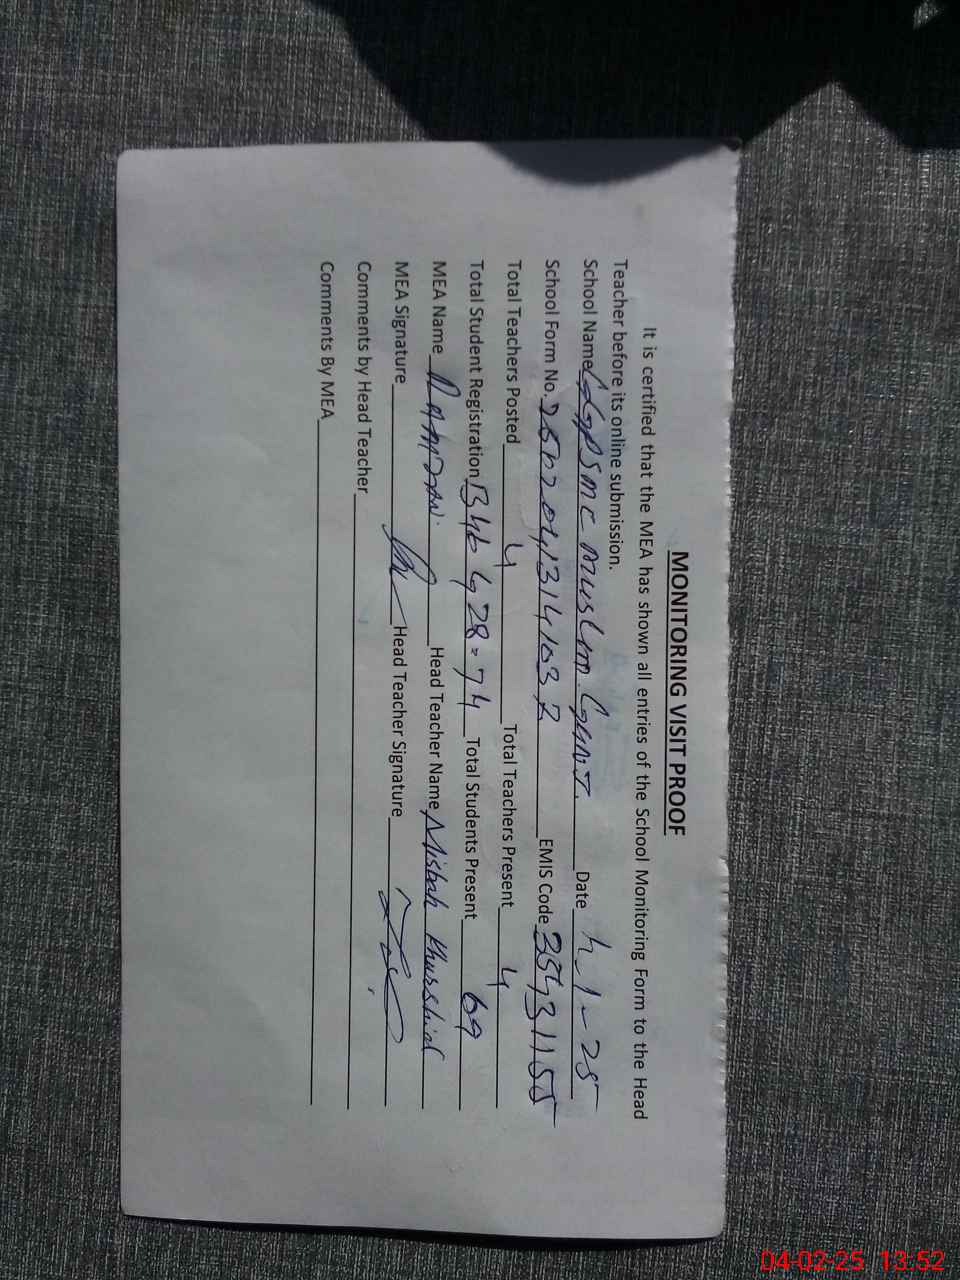 MONITORING VISIT PROOF
It is certified that the MEA has shown all entries of the School Monitoring Form to the Head
Teacher before its online submission.
School Name GGPS MC Muslim Gunj. Date 1-25
School Form No. 20413141032 EMIS Code 35431155
Total Teachers Posted 4 Total Teachers Present 4
Total Student Registration B46 G 28 = 74 Total Students Present 69
MEA Name Head Teacher Name Misbah Khurshid
MEA Signature Head Teacher Signature
Comments by Head Teacher
Comments By MEA
04-02-25 13:52